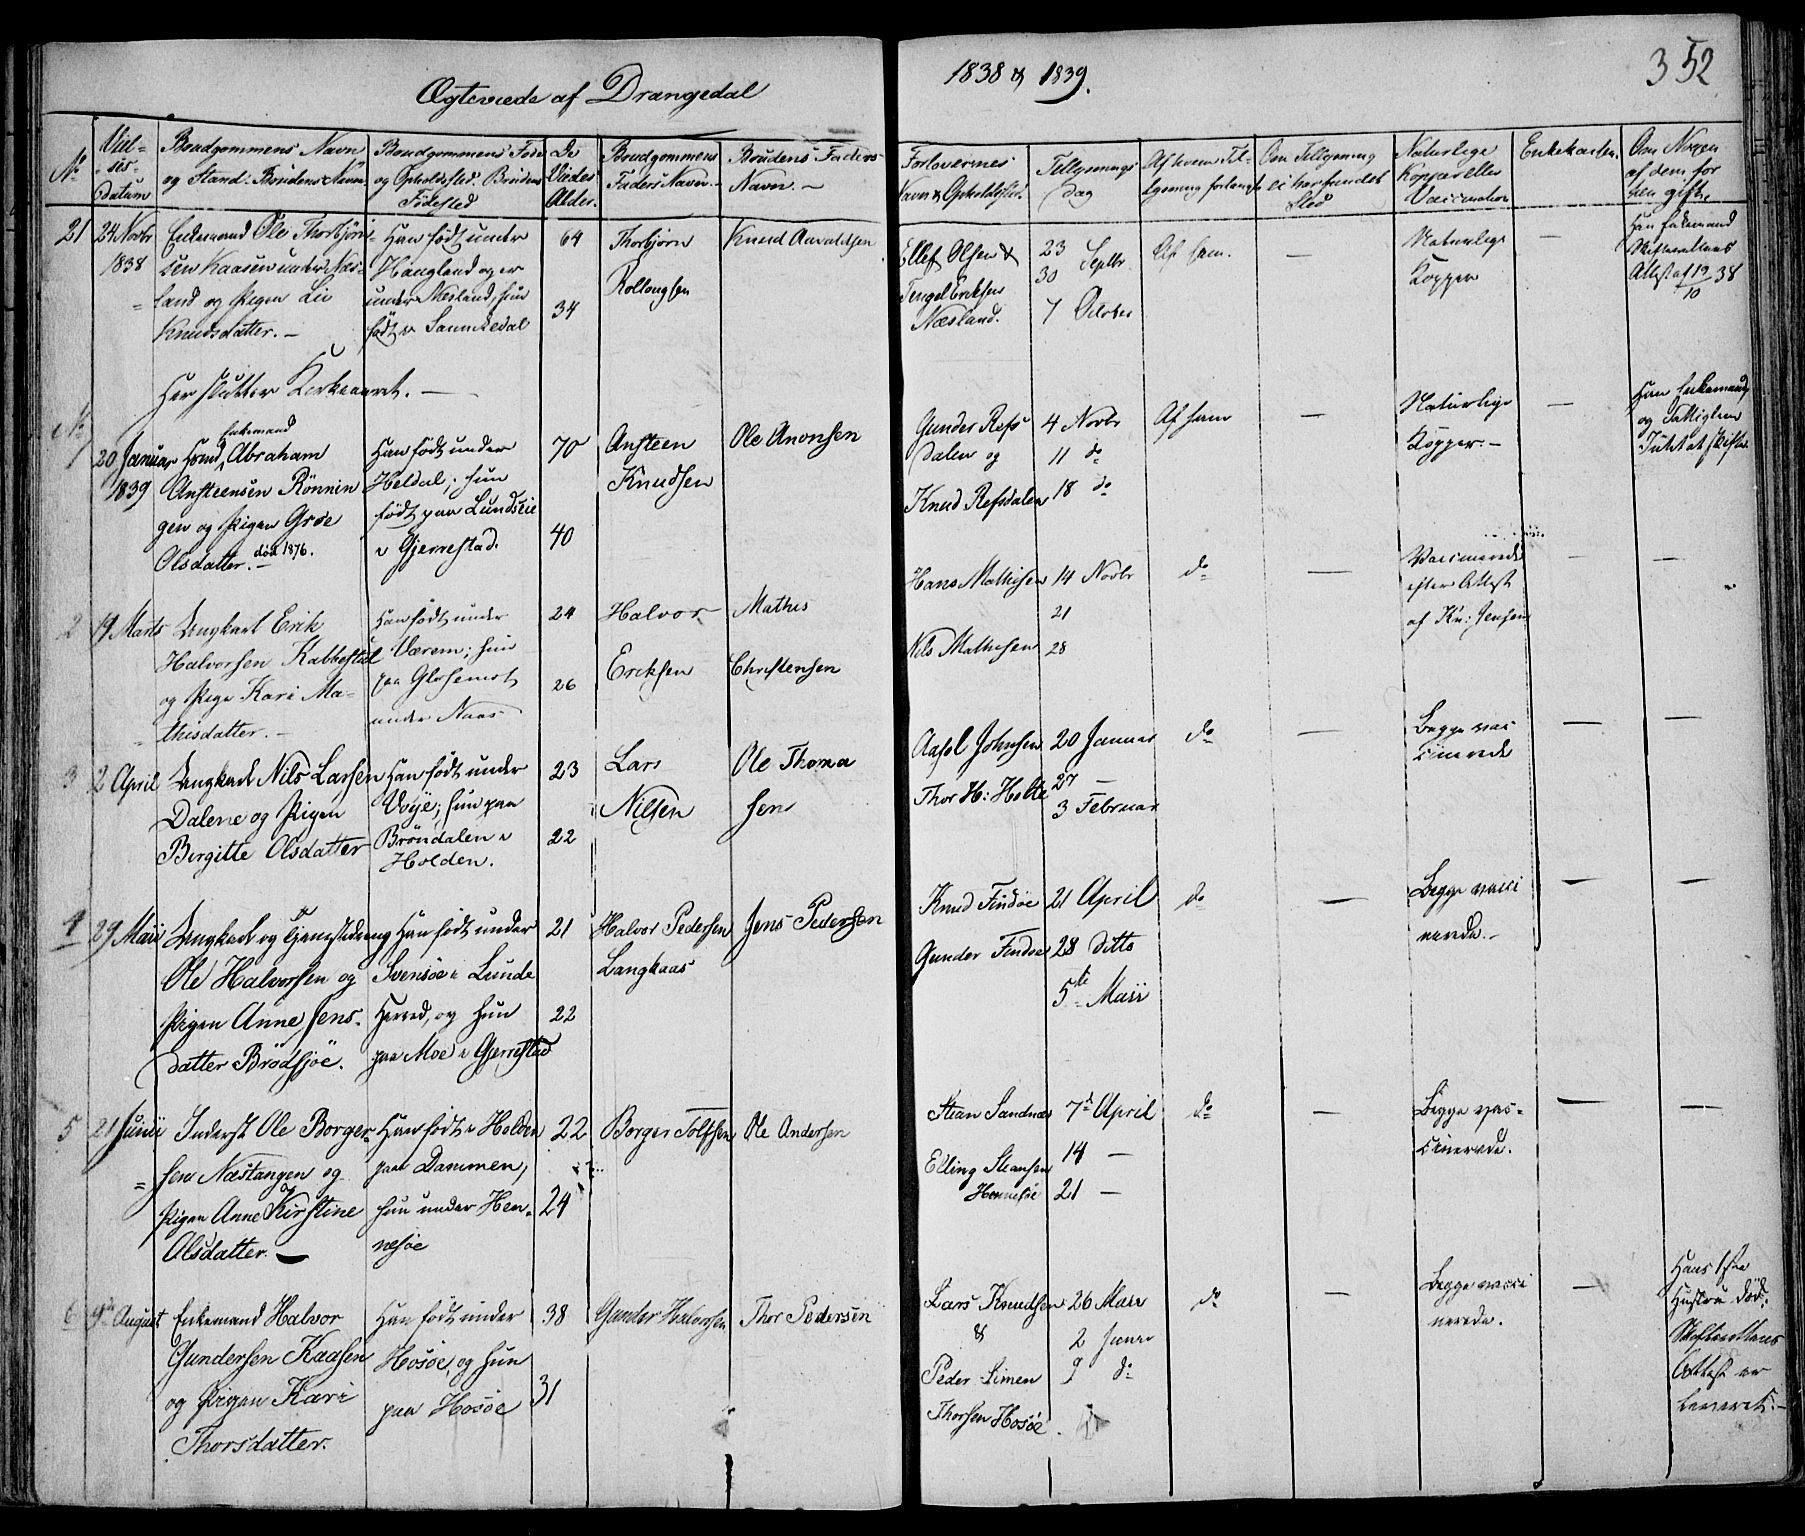 Ægteviede af Drangedal
1838 & 1839.
352
No
Viel-
ses-
Datum
Brudgommens Navn
og Stand. Brudens Navn
Brudgommens Føde
og Opholdssted. Brudens
Fødested
De
Viedes
Alder.
Brudgommens
Faders Navn.
Brudens Faders
Navn. -
Forlovernes
Navn & Opholdssted.
Tillysnings
Dag
Af hvem Til-
lysning forlangt
Om Tillysning
ei har fundet
Sted
Naturlige
Kopper eller
Vaccination
Enkekassen.
Om Nogen
af dem før
have gifte
21
24 Novbr
1838
Enkemand Ole Thorbjørn-
sen Kaasen under Næs-
land og Pigen Liv
Knudsdatter. -
Han født under
Haugland og er
under Næsland, hun
født i Sannikedal
64
34
Thorbjørn
Rollougsen
Knud Aavaldsen
Ellef Olsen &
Tengel Eriksen
Næsland.
23
30 Septbr
7 October
Af ham.
—
Naturlige
Kopper
—
Han Enkemand
Skifterettens
Attest af 19/10 38
Her slutter Kirkeaaret. —
No 1
20 Januar
1839
Enkemand
Abraham
Ansteensen Rønnin
gen og Pigen Groe
Olsdatter. - død 1876.
Han født under
Heldal; hun
født paa Lundseie
i Gjerrestad.
70
40
Ansteen
Knudsen
Ole Anonsen
Gunder Refs
dalen og
Knud Refsdalen
4 Novbr
11 do
18 do
Af ham
—
Naturlige
Kopper. -
—
Han Enkemand
og Fattiglem
Intet at skifte
2
19 Marts
Ungkarl Erik
Halvorsen Kabbestad
og Pige Kari Ma-
thisdatter. -
Han født under
Værem; hun
paa Glosemot
under Naas
24
26
Halvor
Eriksen
Mathis
Christensen
Hans Mathisen
Nils Mathisen
14 Novbr
21
28
do
—
Vaccinerede
efter Attest
af Kn: Jensen
—
—
3
2 April
Ungkarl Nils Larsen
Dalene og Pigen
Bergitte Olsdatter
Han født under
Voje; hun paa
Brøndalen i
Holden.
23
22
Lars
Nilsen
Ole Thoma
sen
Aasol Johnsen
Thor H: Holte
20 Januar
27 —
3 Februar
do
—
Begge vac
cinerede
—
—
4
29 Maii
Ungkarl og Tjenestedreng
Ole Halvorsen og
Pigen Anne Jens-
datter Brødsjøe.
Han født under
Svensøe i Lunde
Herred, og hun
paa Moe i Gjerrestad
21
22
Halvor Pedersen
Langkaas
Jens Pedersen
Knud Findøe
Gunder Findøe
21 April
28 ditto
5te Maii
do
—
Begge vacci
nerede. -
—
—
5
21 Junii
Inderst Ole Borger-
sen Næstangen og
Pigen Anne Kirstine
Olsdatter. —
Han født i Holden
paa Dammen,
hun under Hen-
nesøe
22
24
Borger Tolfsen
Ole Andersen
Stean Sandnæs
Elling Steansen
Hennesøe
7de April
14 —
21 —
do
—
Begge vac-
cinerede.
—
—
6
9de August
Enkemand Halvor
Gundersen Kaasen
og Pigen Kari
Thorsdatter.
Han født under
Hosøe, og hun
paa Hosøe
38
31
Gunder Halvorsen
Thor Pedersen
Lars Knudsen
&
Peder Simen
Thorsen Hosøe
26 Maii
2 Junii
9 do
do
—
Begge vacci
nerede.
—
Hans 1ste
Hustru død.
Skifterettens
Attest er
leveret. -